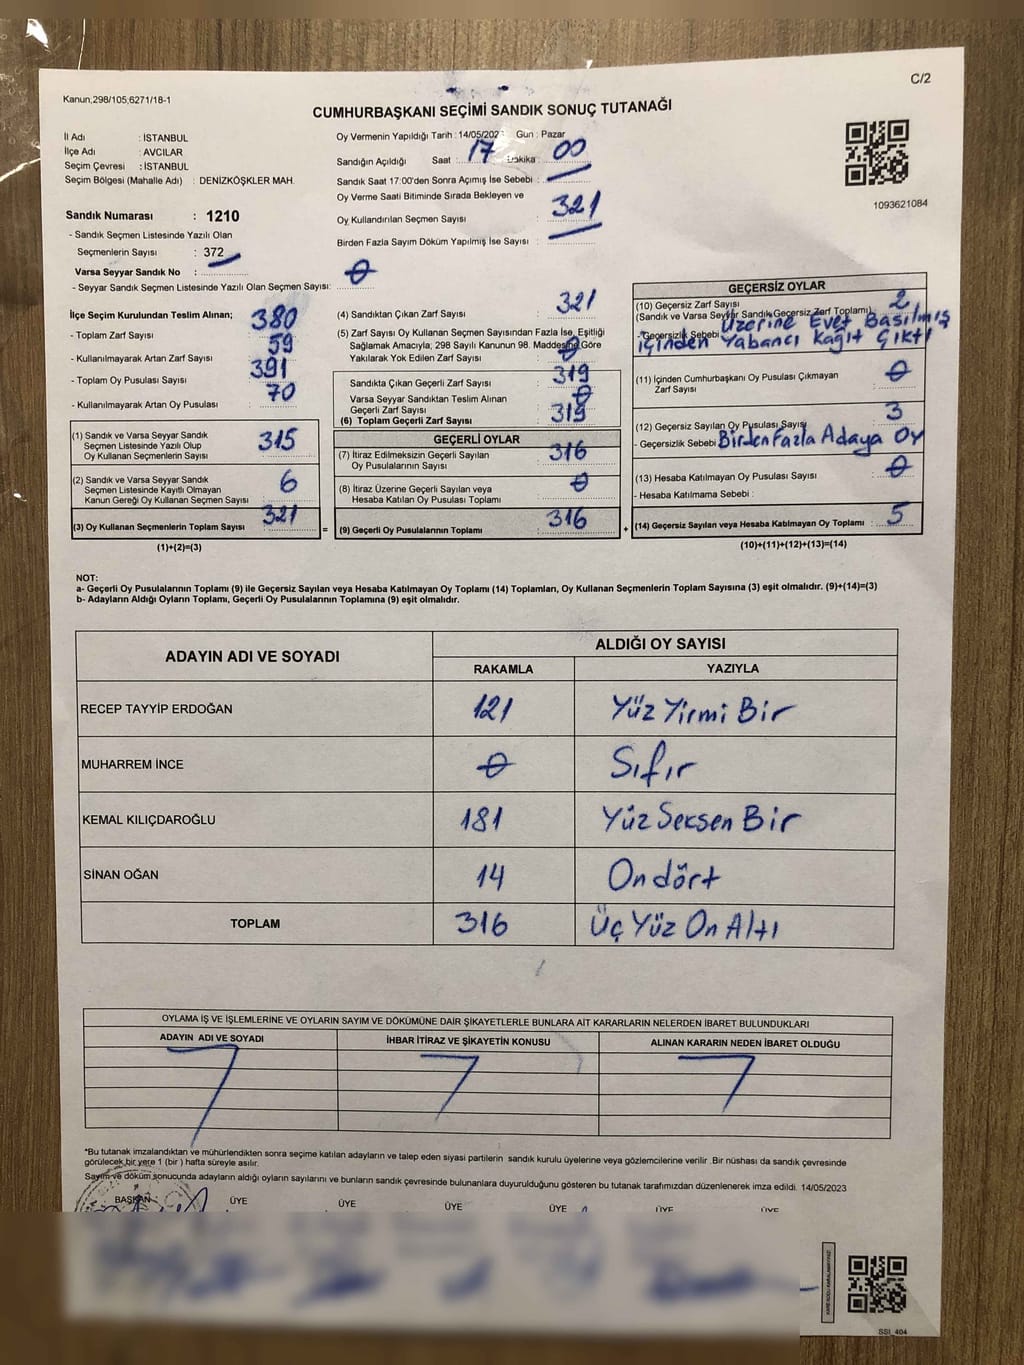 C/2
Kanun;298/105;6271/18-1
CUMHURBAŞKANI SEÇİMİ SANDIK SONUÇ TUTANAĞI
İl Adı : İSTANBUL
İlçe Adı : AVCILAR
Seçim Çevresi : İSTANBUL
Seçim Bölgesi (Mahalle Adı) : DENİZKÖŞKLER MAH.
Oy Vermenin Yapıldığı Tarih : 14/05/2023 Gün : Pazar
Sandığın Açıldığı Saat : 17 Dakika : 00
Sandık Saat 17:00'den Sonra Açımış İse Sebebi :
Oy Verme Saati Bitiminde Sırada Bekleyen ve
Oy Kullandırılan Seçmen Sayısı : 321
Birden Fazla Sayım Döküm Yapılmış İse Sayısı :
1093621084
Sandık Numarası : 1210
- Sandık Seçmen Listesinde Yazılı Olan
Seçmenlerin Sayısı : 372
Varsa Seyyar Sandık No :
- Seyyar Sandık Seçmen Listesinde Yazılı Olan Seçmen Sayısı: 0
İlçe Seçim Kurulundan Teslim Alınan;
- Toplam Zarf Sayısı : 380
- Kullanılmayarak Artan Zarf Sayısı : 59
- Toplam Oy Pusulası Sayısı : 391
- Kullanılmayarak Artan Oy Pusulası : 70
(1) Sandık ve Varsa Seyyar Sandık
Seçmen Listesinde Yazılı Olup
Oy Kullanan Seçmenlerin Sayısı : 315
(2) Sandık ve Varsa Seyyar Sandık
Seçmen Listesinde Kayıtlı Olmayan
Kanun Gereği Oy Kullanan Seçmen Sayısı : 6
(3) Oy Kullanan Seçmenlerin Toplam Sayısı : 321
(1)+(2)=(3)
(4) Sandıktan Çıkan Zarf Sayısı : 321
(5) Zarf Sayısı Oy Kullanan Seçmen Sayısından Fazla İse, Eşitliği
Sağlamak Amacıyla; 298 Sayılı Kanunun 98. Maddesine Göre
Yakılarak Yok Edilen Zarf Sayısı : 0
Sandıkta Çıkan Geçerli Zarf Sayısı : 319
Varsa Seyyar Sandıktan Teslim Alınan
Geçerli Zarf Sayısı : 0
(6) Toplam Geçerli Zarf Sayısı : 319
GEÇERLİ OYLAR
(7) İtiraz Edilmeksizin Geçerli Sayılan
Oy Pusulalarının Sayısı : 316
(8) İtiraz Üzerine Geçerli Sayılan veya
Hesaba Katılan Oy Pusulası Toplamı : 0
=
(9) Geçerli Oy Pusulalarının Toplamı : 316
+
GEÇERSİZ OYLAR
(10) Geçersiz Zarf Sayısı : 2
(Sandık ve Varsa Seyyar Sandık Geçersiz Zarf Toplamı)
- Geçersizlik Sebebi : Üzerine Evet Basılmış
içinden Yabancı Kağıt Çıktı
(11) İçinden Cumhurbaşkanı Oy Pusulası Çıkmayan
Zarf Sayısı : 0
(12) Geçersiz Sayılan Oy Pusulası Sayısı : 3
- Geçersizlik Sebebi : Birden Fazla Adaya Oy
(13) Hesaba Katılmayan Oy Pusulası Sayısı : 0
- Hesaba Katılmama Sebebi :
(14) Geçersiz Sayılan veya Hesaba Katılmayan Oy Toplamı : 5
(10)+(11)+(12)+(13)=(14)
NOT:
a- Geçerli Oy Pusulalarının Toplamı (9) ile Geçersiz Sayılan veya Hesaba Katılmayan Oy Toplamı (14) Toplamları, Oy Kullanan Seçmenlerin Toplam Sayısına (3) eşit olmalıdır. (9)+(14)=(3)
b- Adayların Aldığı Oyların Toplamı, Geçerli Oy Pusulalarının Toplamına (9) eşit olmalıdır.
ADAYIN ADI VE SOYADI
ALDIĞI OY SAYISI
RAKAMLA YAZIYLA
RECEP TAYYİP ERDOĞAN 121 Yüz Yirmi Bir
MUHARREM İNCE 0 Sıfır
KEMAL KILIÇDAROĞLU 181 Yüz Seksen Bir
SİNAN OĞAN 14 On dört
TOPLAM 316 Üç Yüz On Altı
OYLAMA İŞ VE İŞLEMLERİNE VE OYLARIN SAYIM VE DÖKÜMÜNE DAİR ŞİKAYETLERLE BUNLARA AİT KARARLARIN NELERDEN İBARET BULUNDUKLARI
ADAYIN ADI VE SOYADI İHBAR İTİRAZ VE ŞİKAYETİN KONUSU ALINAN KARARIN NEDEN İBARET OLDUĞU
*Bu tutanak imzalandıktan ve mühürlendikten sonra seçime katılan adayların ve talep eden siyasi partilerin sandık kurulu üyelerine veya gözlemcilerine verilir. Bir nüshası da sandık çevresinde
görülecek bir yere 1 (bir) hafta süreyle asılır.
Sayım ve döküm sonucunda adayların aldığı oyların sayılarını ve bunların sandık çevresinde bulunanlara duyurulduğunu gösteren bu tutanak tarafımızdan düzenlenerek imza edildi. 14/05/2023
BAŞKAN ÜYE ÜYE ÜYE ÜYE ÜYE ÜYE
SSI_404